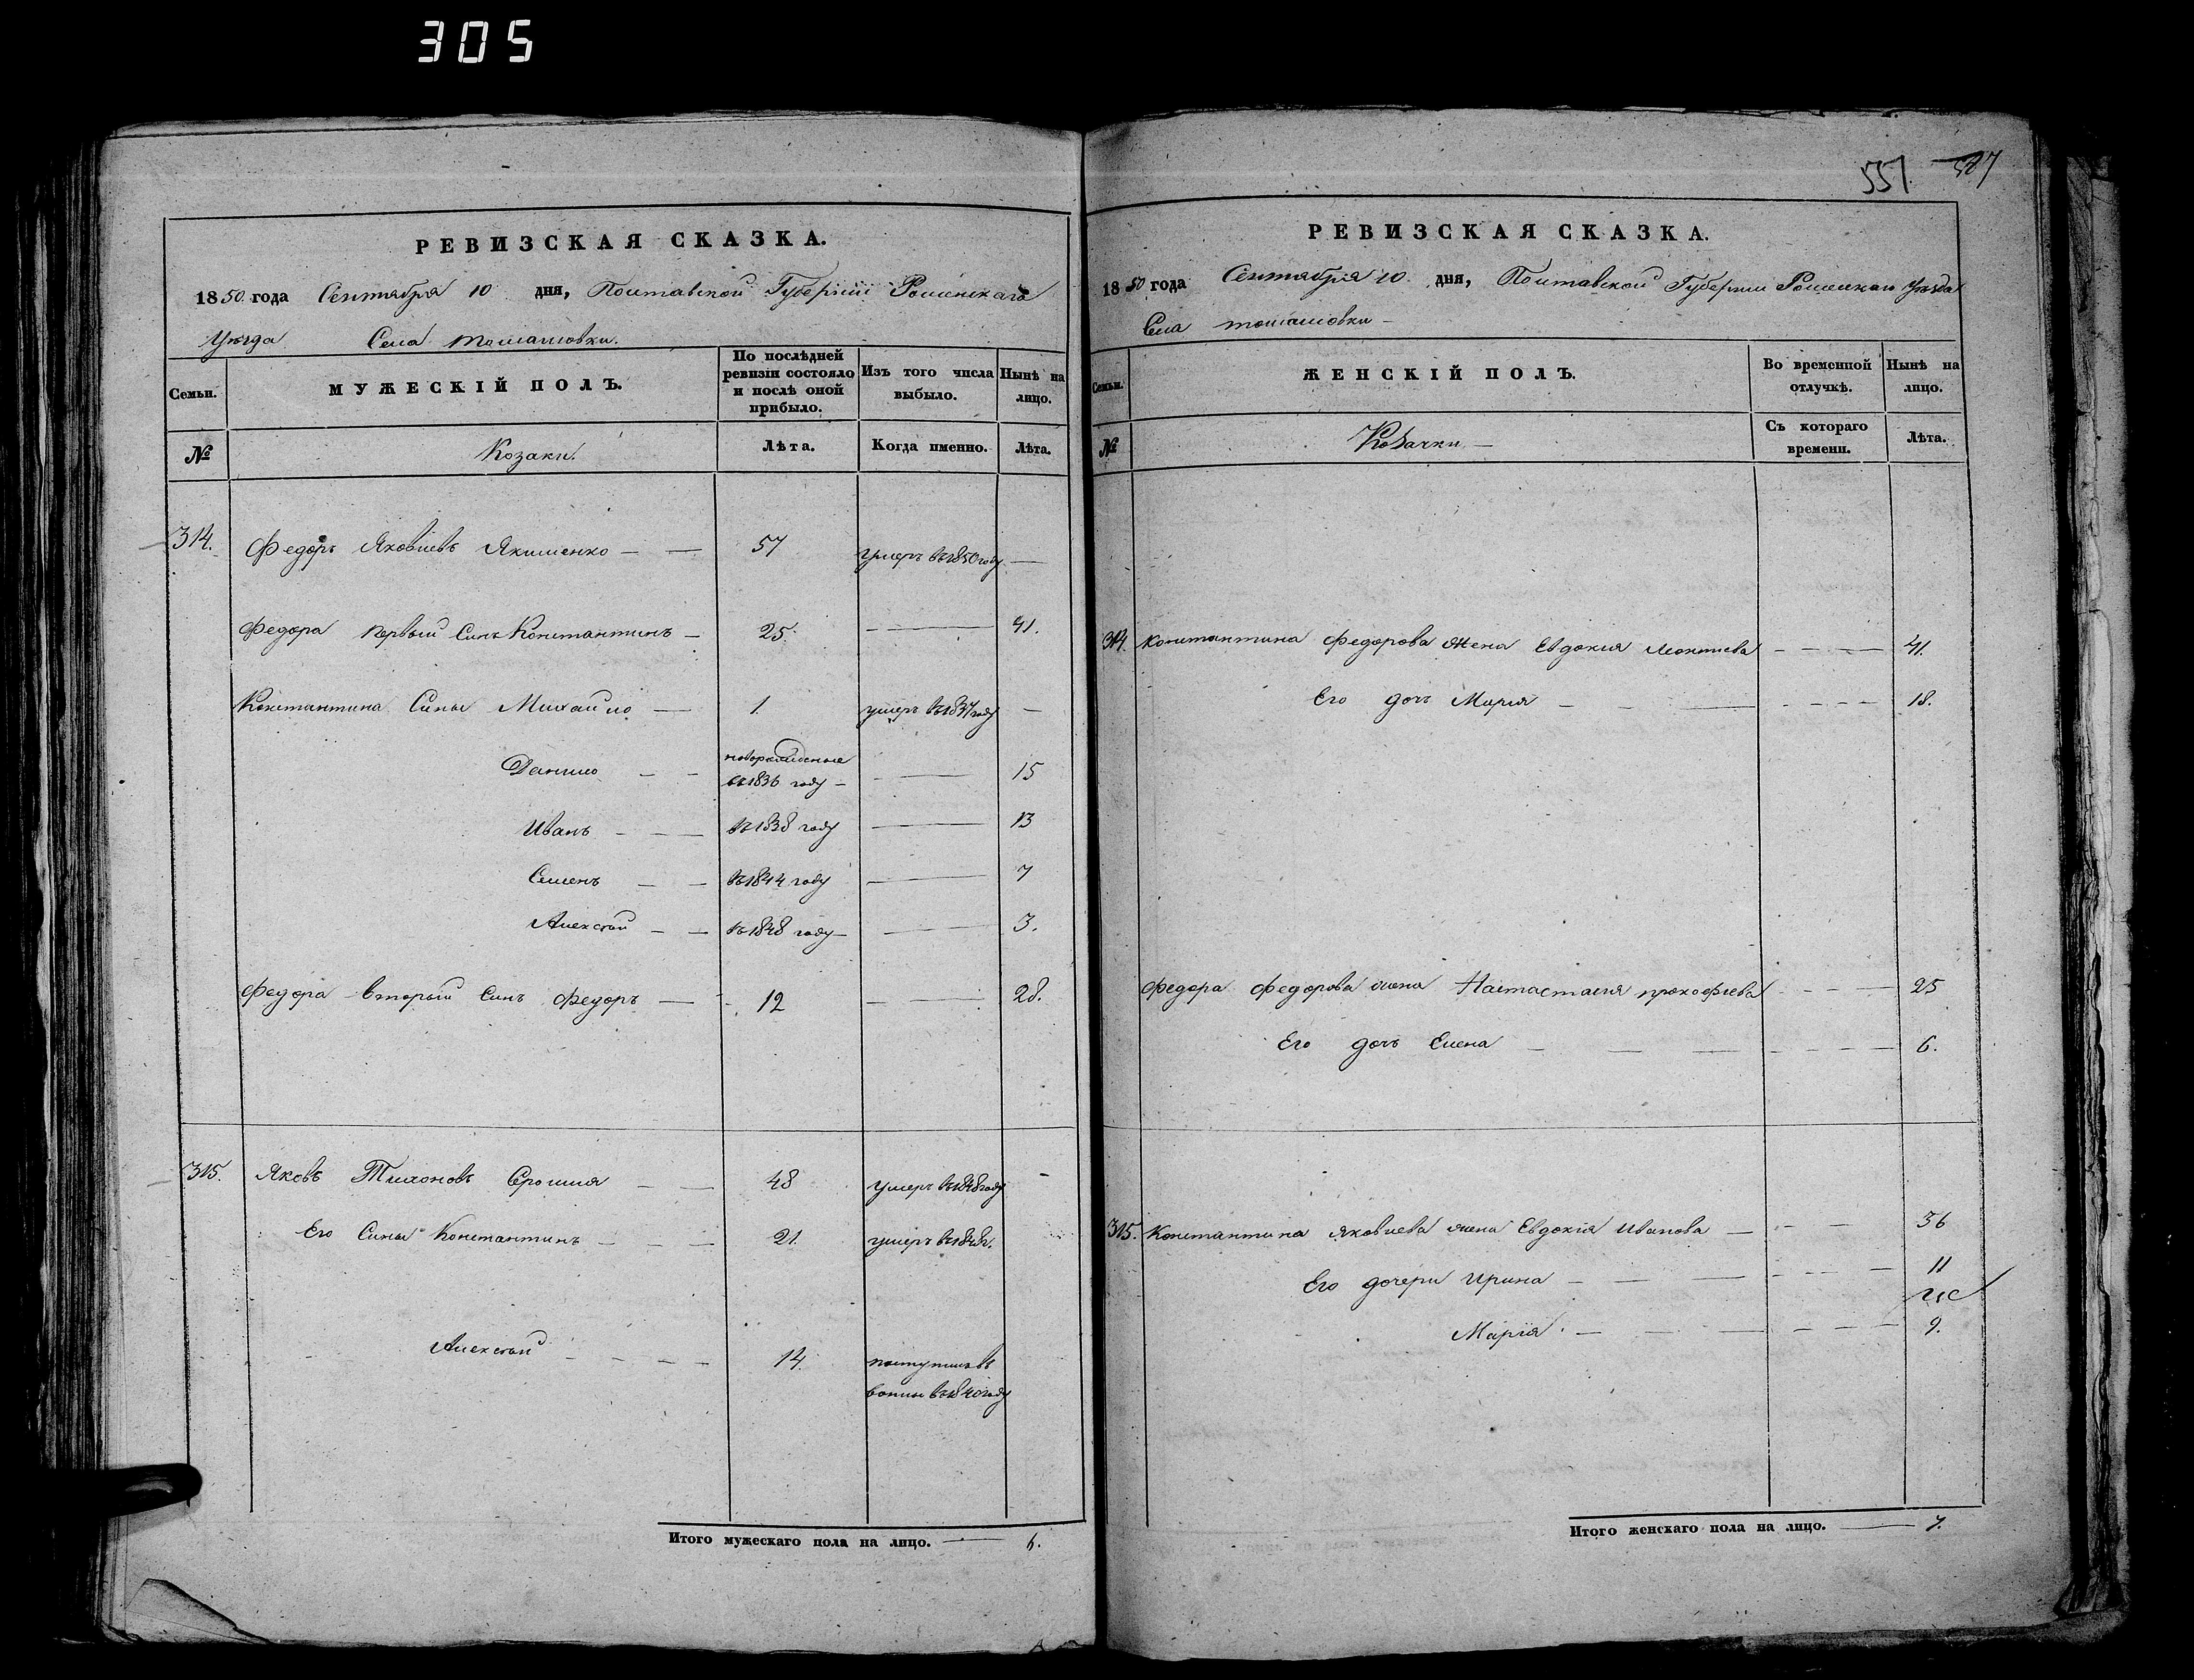 305
551. 527
РЕВИЗСКАЯ СКАЗКА.
1850 года Сентября 10 дня, Полтавской Губерніи Роменскаго
Уѣзда Села Томашовки.
Семьи. МУЖЕСКІЙ ПОЛЪ. По послѣдней ревизіи состояло и послѣ оной прибыло. Изъ того числа выбыло. Нынѣ на лицо.
№ Козаки. Лѣта. Когда именно. Лѣта.
314. Федоръ Яковлевъ Якименко — — 57 умеръ въ 1850 году —
Федора первый Синъ Константинъ — 25 — 41.
Константина Сины Михайло — 1. умеръ въ 1837 году —
Данило — — новорожденные въ 1836 году — — 15
Иванъ — — въ 1838 году — 13
Семенъ — — въ 1844 году — 7
Алексѣй — — въ 1848 году — — 3.
Федора второй Синъ Федоръ — 12 — 28.
315. Яковъ Тихоновъ Ерошия — — 48 умеръ въ 1848 году -
Его Сины Константинъ — — — 21. умеръ въ 1848 г.
Алексѣй — — — — 14. поступилъ въ
воины въ 1840 году
Итого мужескаго пола на лицо. — 6.
РЕВИЗСКАЯ СКАЗКА.
1850 года Сентября 10 дня, Полтавской Губерніи Роменскаго Уѣзда
Села Томашовки —
Семьи. ЖЕНСКІЙ ПОЛЪ. Во временной отлучкѣ. Нынѣ на лицо.
№ Козачки — Съ котораго времени. Лѣта.
314. Константина Федорова жена Евдокия Леонтиева — — — — 41.
Его дочъ Мария — — — — — 18.
Федора Федорова жена Настасия прокофиева — — — 25
Его дочъ Елена — — — — — — 6.
315. Константина Яковлева жена Евдокія Иванова — — — 36
Его дочери Ирина — — — — — — 11
Марія — — — — — — 9.
Итого женскаго пола на лицо. — 7.